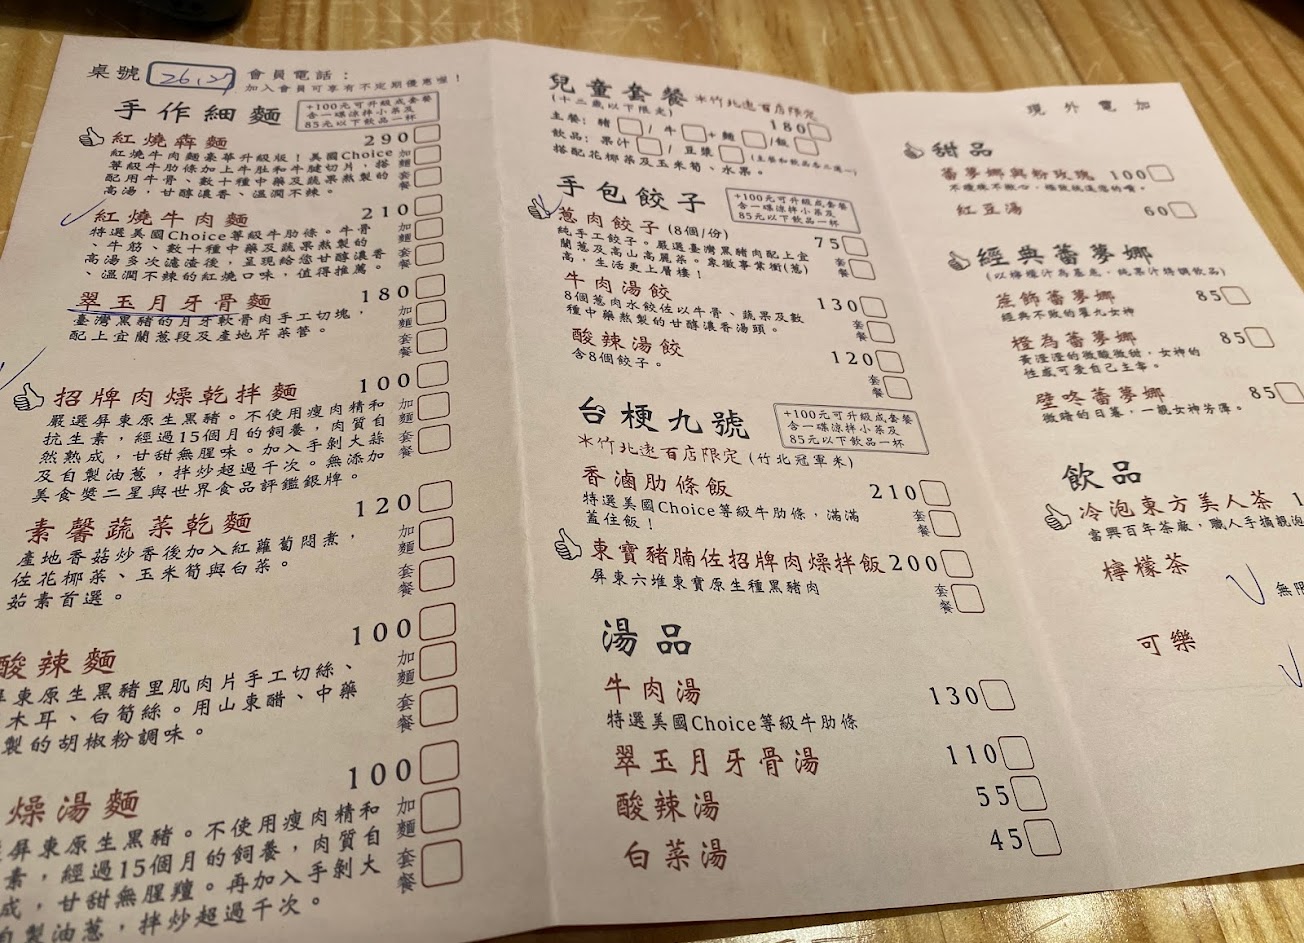 桌號 26,21 會員電話：
加入會員可享有不定期優惠喔！
手作細麵
+100元可升級成套餐
含一碟涼拌小菜及
85元以下飲品一杯
紅燒犇麵 290
紅燒牛肉麵豪華升級版！美國Choice
等級牛肋條加上牛肚和牛腱切片，搭
配用牛骨、數十種中藥及蔬果熬製的
高湯，甘醇濃香、溫潤不辣。
加麵
套餐
紅燒牛肉麵 210
特選美國Choice等級牛肋條。牛骨
、牛筋、數十種中藥及蔬果熬製的
高湯多次濾渣後，呈現給您甘醇濃香
、溫潤不辣的紅燒口味，值得推薦。
加麵
套餐
翠玉月牙骨麵 180
臺灣黑豬的月牙軟骨肉手工切塊，
配上宜蘭蔥段及產地芹菜管。
加麵
套餐
招牌肉燥乾拌麵 100
嚴選屏東原生黑豬。不使用瘦肉精和
抗生素，經過15個月的飼養，肉質自
然熟成，甘甜無腥味。加入手剝大蒜
及自製油蔥，拌炒超過千次。無添加
美食獎二星與世界食品評鑑銀牌。
加麵
套餐
素馨蔬菜乾麵 120
產地香菇炒香後加入紅蘿蔔悶煮，
佐花椰菜、玉米筍與白菜。
茹素首選。
加麵
套餐
酸辣麵 100
東原生黑豬里肌肉片手工切絲、
木耳、白筍絲。用山東醋、中藥
製的胡椒粉調味。
加麵
套餐
燥湯麵 100
屏東原生黑豬。不使用瘦肉精和
素，經過15個月的飼養，肉質自
成，甘甜無腥羶。再加入手剝大
自製油蔥，拌炒超過千次。
加麵
套餐
兒童套餐 ＊竹北遠百店限定
(十二歲以下限定) 180
主餐：豬 / 牛 + 麵 / 飯
飲品：果汁 / 豆漿 (主餐和飲品各二選一)
搭配花椰菜及玉米筍、水果。
手包餃子
+100元可升級成套餐
含一碟涼拌小菜及
85元以下飲品一杯
蔥肉餃子 (8個/份) 75
純手工餃子。嚴選臺灣黑豬肉配上宜
蘭蔥及高山高麗菜。象徵事業衝(蔥)
高，生活更上層樓！
套餐
牛肉湯餃 130
8個蔥肉水餃佐以牛骨、蔬果及數
種中藥熬製的甘醇濃香湯頭。
套餐
酸辣湯餃 120
含8個餃子。
套餐
台梗九號
+100元可升級成套餐
含一碟涼拌小菜及
85元以下飲品一杯
＊竹北遠百店限定 (竹北冠軍米)
香滷肋條飯 210
特選美國Choice等級牛肋條，滿滿
蓋住飯！
套餐
東寶豬腩佐招牌肉燥拌飯 200
屏東六堆東寶原生種黑豬肉
套餐
湯品
牛肉湯 130
特選美國Choice等級牛肋條
翠玉月牙骨湯 110
酸辣湯 55
白菜湯 45
現外電加
甜品
蕃夢娜與粉玫瑰 100
紅豆湯 60
經典蕃夢娜
(以檸檬汁為基底，純果汁特調飲品)
蔗飾蕃夢娜 85
經典不敗的看九女神
橙為蕃夢娜 85
黃澄澄的微酸微甜，女神的
性感可愛自己主宰。
壁咚蕃夢娜 85
微暗的日暮，一親女神芳澤。
飲品
冷泡東方美人茶 1
當興百年茶廠，職人手摘親泡
檸檬茶
無限
可樂